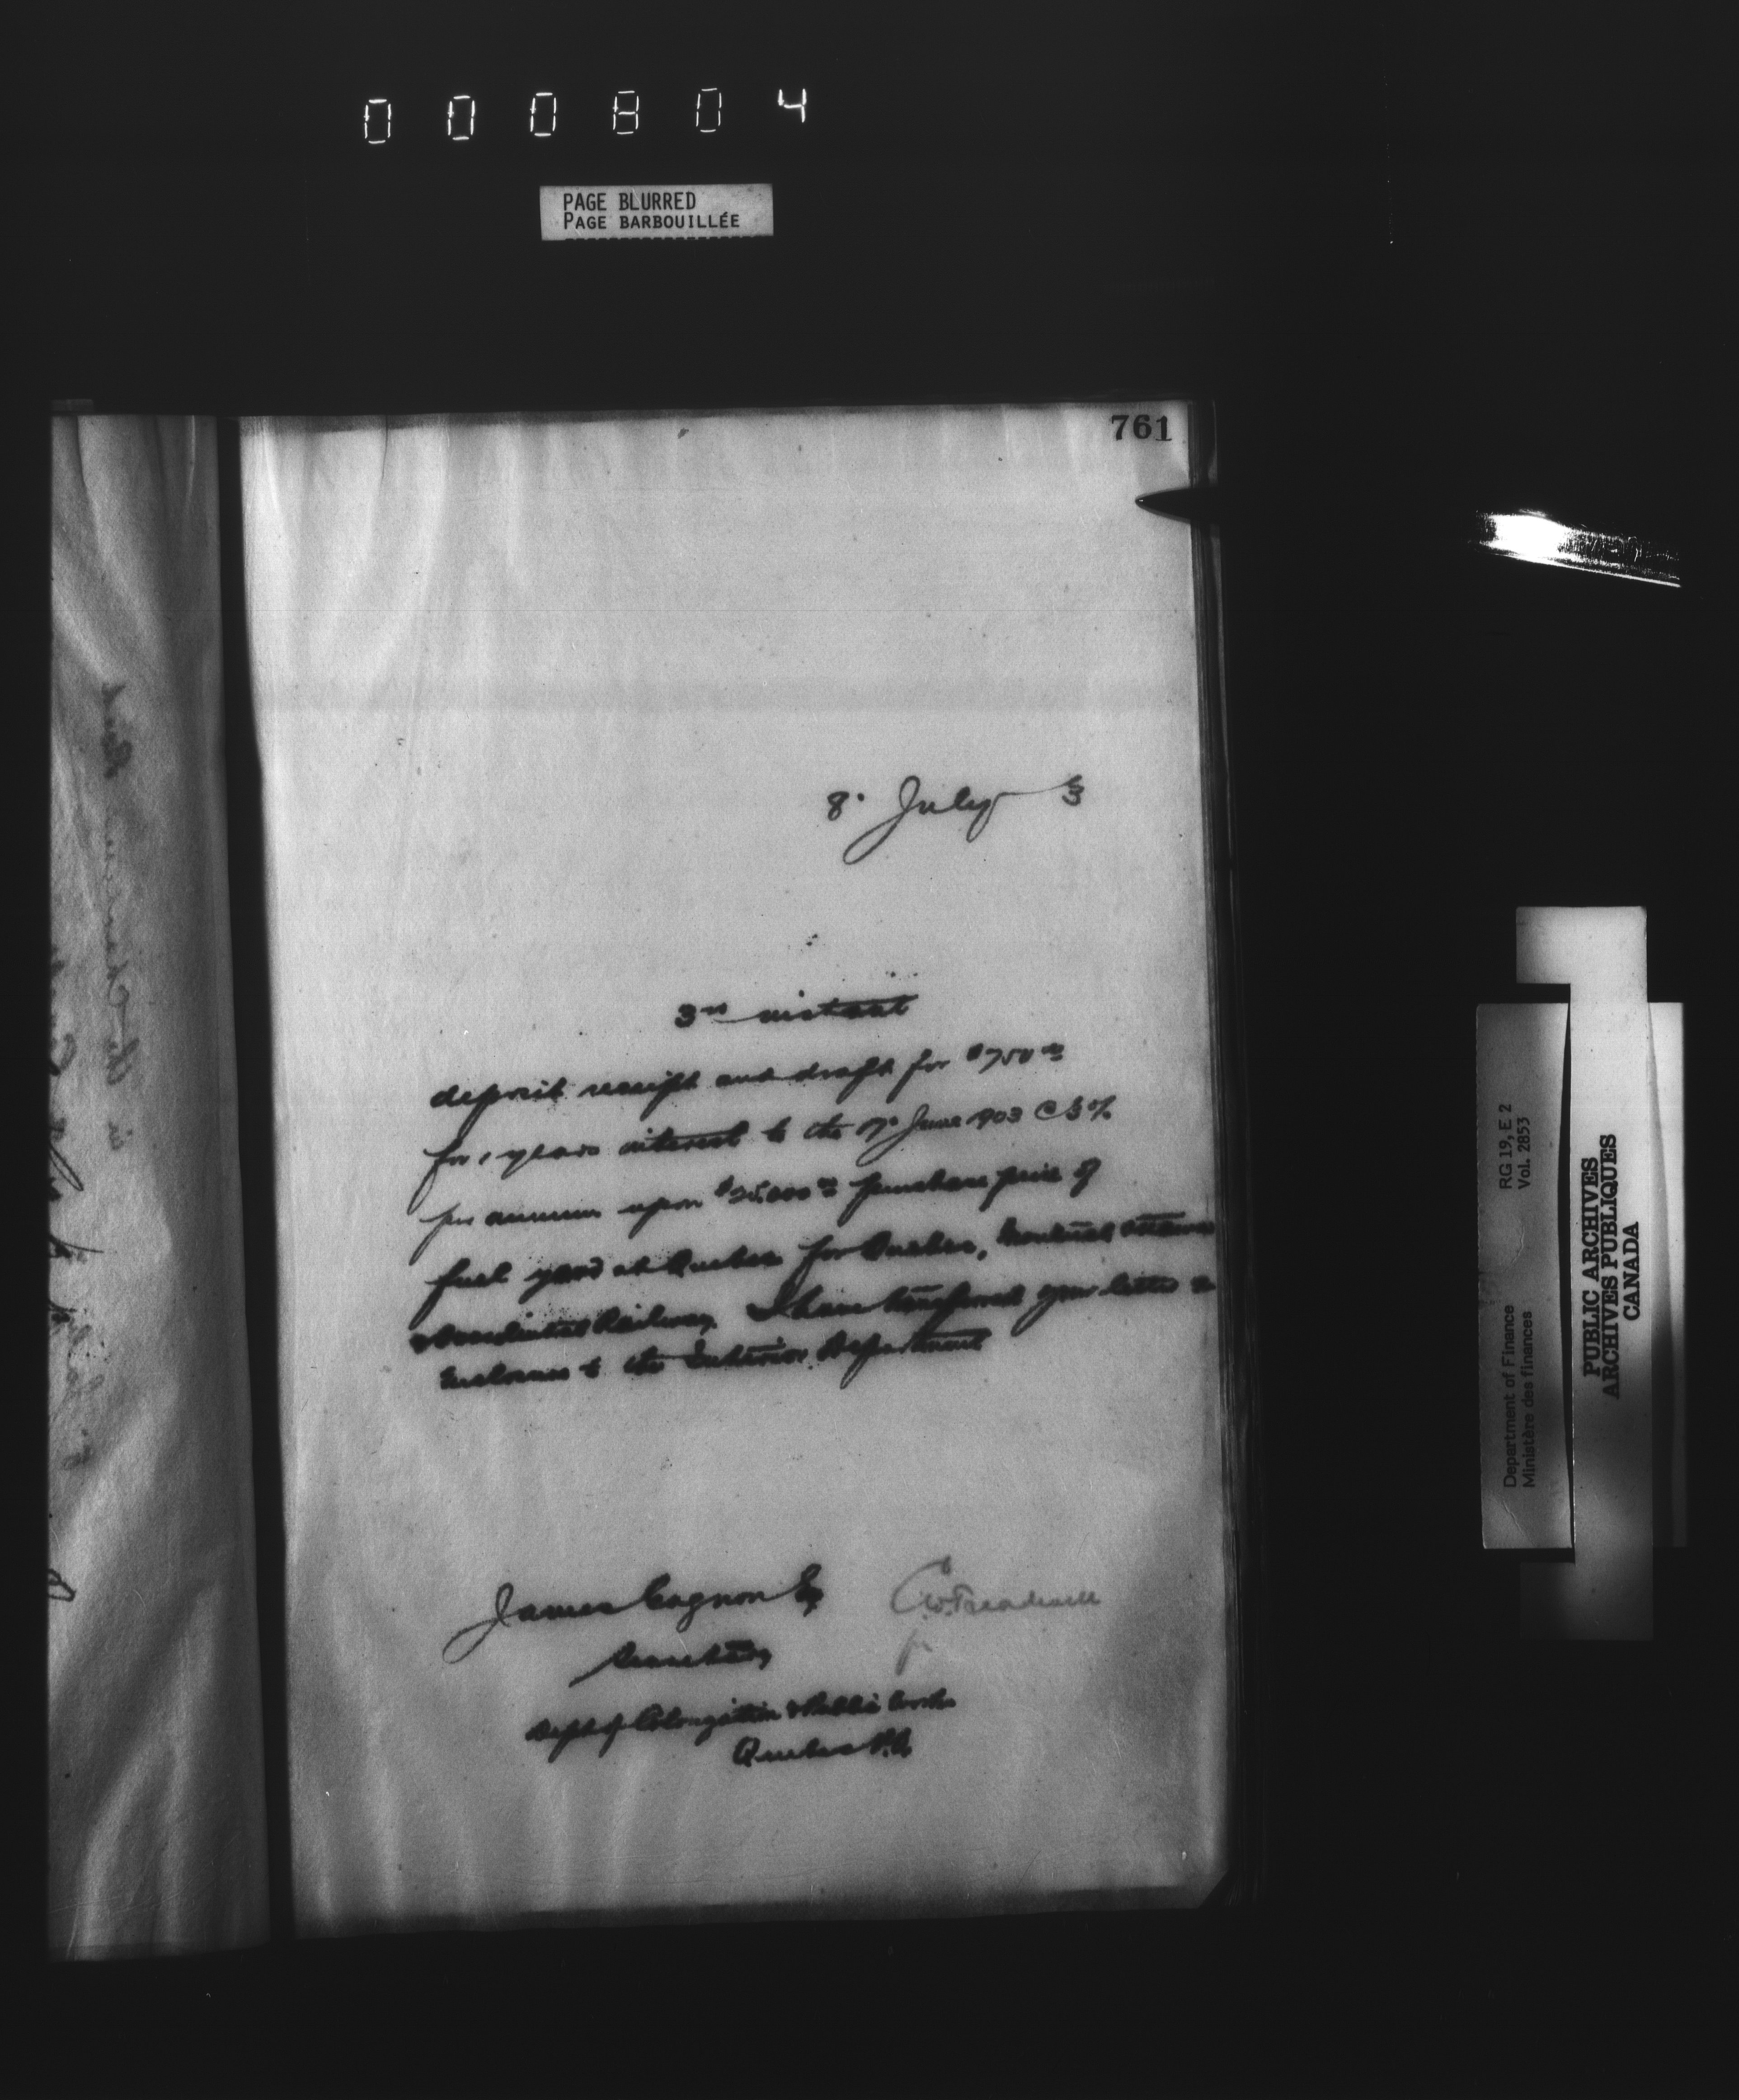 000804
PAGE BLURRED
PAGE BARBOUILLÉE
761
8. July 3
3rd instant
deposit receipt and draft for $750.00
for 1 years interest to the 17. June 1903 @ 3%
per annum upon $25,000.00 purchase price of
fuel yard at Quebec for Quebec, Montreal Ottawa
& Occidental Railway. I have transferred your letter &
enclosures to the Interior Department
James Gagnon Esq
C.W. Treadwell
Secretary
for
Dept of Colonization & Public Works
Quebec P.Q.
RG 19, E 2
Vol. 2853
Department of Finance
Ministère des finances
PUBLIC ARCHIVES
ARCHIVES PUBLIQUES
CANADA